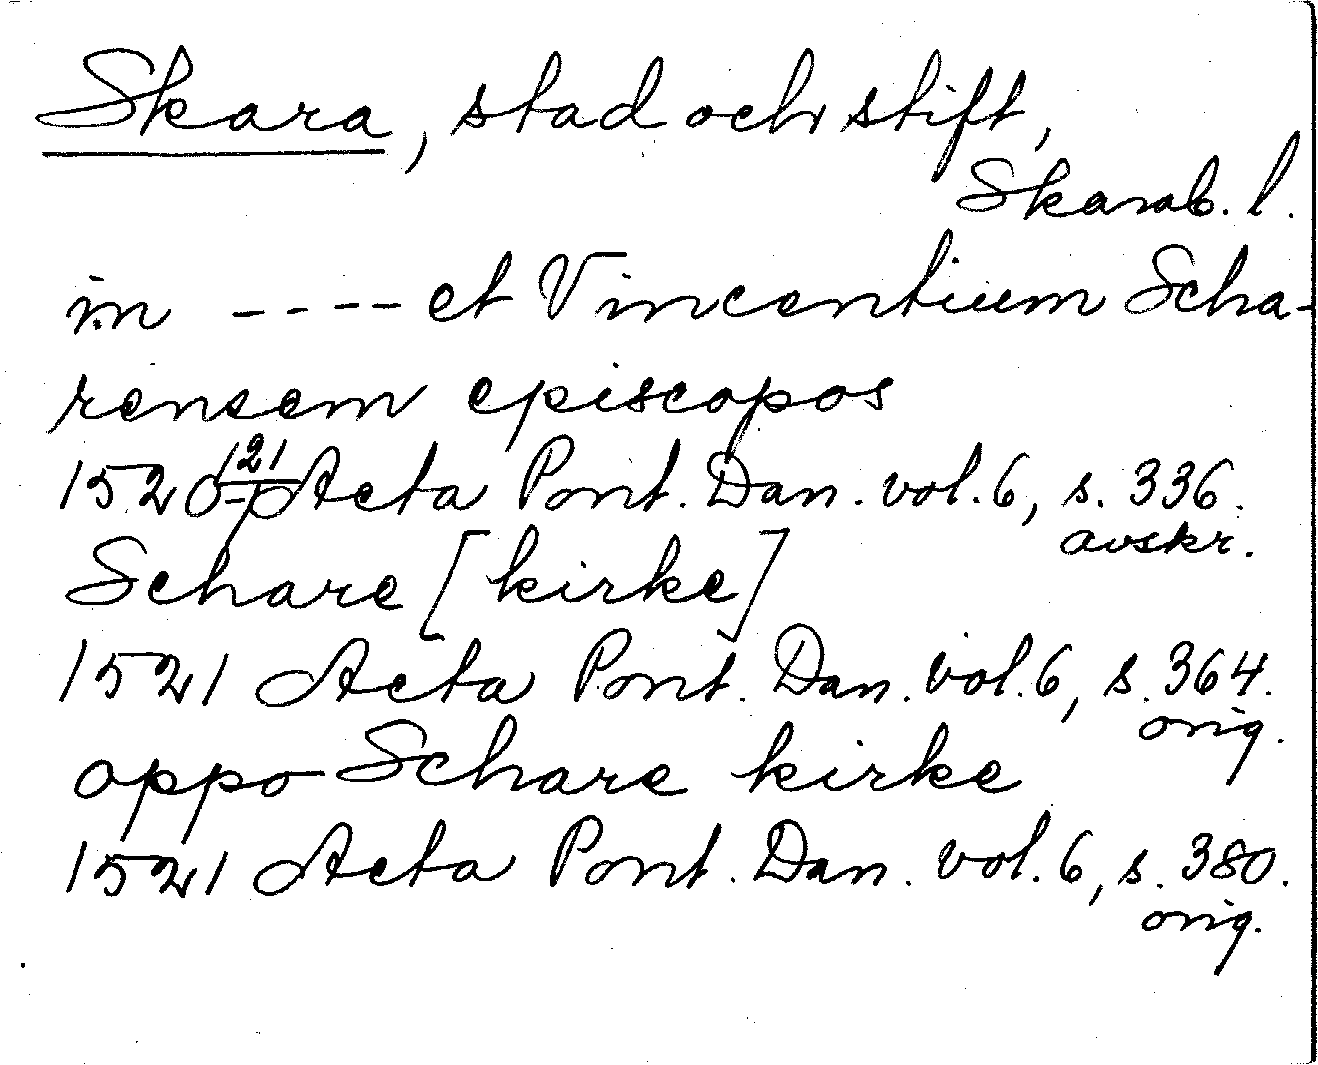 Skara, stad och stift,
Skarab. l.
in ---- et Vincentium Scha-
rensem episcopos
1520-/21/ Acta Pont. Dan. vol. 6, s. 336.
avskr.
Schare [kirke]
1521 Acta Pont. Dan. vol. 6, s. 364.
orig.
oppo Schare kirke
1521 Acta Pont. Dan. vol. 6, s. 380.
orig.